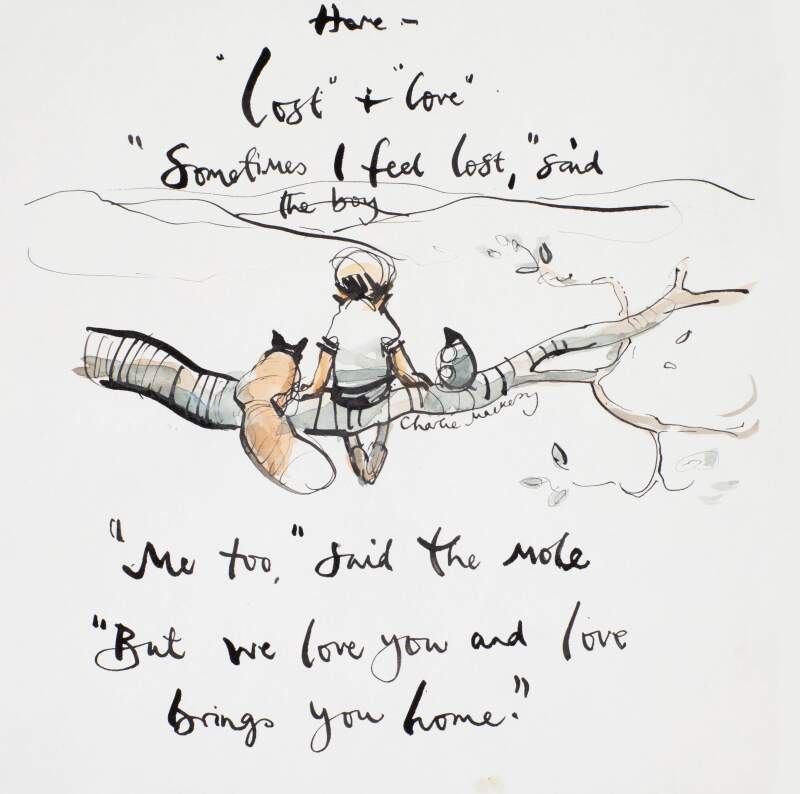 Home –
"Lost" + "Love"
"Sometimes I feel lost," said
the boy
"Me too," said the mole
"But we love you and love
brings you home."
Charlie Mackesy